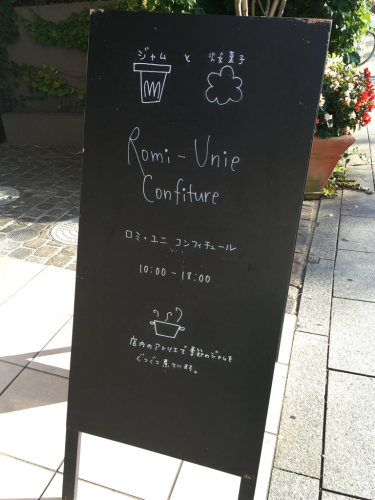 ジャム と 焼菓子
Romi-Unie
Confiture
ロミ・ユニ コンフィチュール
10:00-18:00
店内のアトリエで季節のジャムを
ぐつぐつ煮ています。